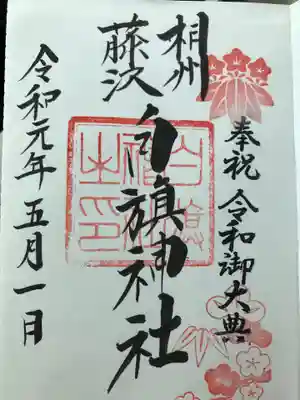 奉祝 令和御大典
相州
藤沢
白旗神社
令和元年五月一日
白旗神社之印